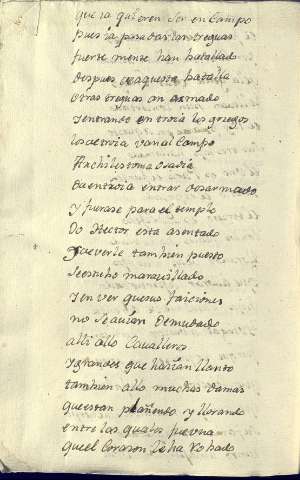 que ia quieren ser en Campo
pues ia pasadas las treguas
fuerte mente han batallado
despues de aquesta batalla
otras treguas an armado
y entrando en troia los griegos
los de troia van al Campo
Archiles toma osadia
en troia entrar desarmado
y fuerase para el templo
Do Hector esta asentado
que verle tambien puesto
se estubo marauillado
y en ver que sus faiciones
no se auian demudado
alli allo Caualleros
y grandes que hazian llanto
tambien allo muchas damas
que estan plañendo y llorando
entre las quales fue una
que el Corazon le ha Robado